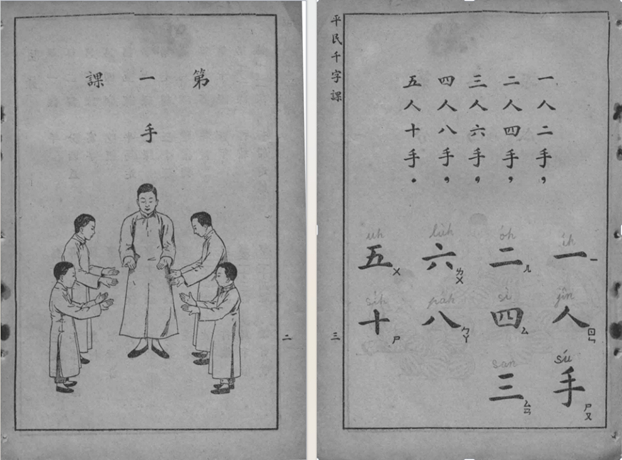 第一課
手
二
平民千字課
一人二手，
二人四手，
三人六手，
四人八手，
五人十手。
ih
一 ㄧ
jîn
人 ㄖㄣ
síu
手 ㄕㄡ
óh
二 ㄦ
sì
四 ㄙ
san
三 ㄙㄢ
六 ㄌㄨ
pah
八 ㄅㄚ
uh
五 ㄨ
sih
十 ㄕ
三